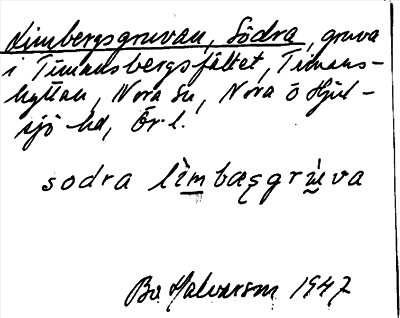 Limbergsgruvan, Södra, gruva
i Timansbergsfältet, Timans-
hyttan, Nora sn, Nora o Hjul-
sjö hd, Ör. l.
sodra lìm bæșgrṳ̀va
Bo Halvarson 1947